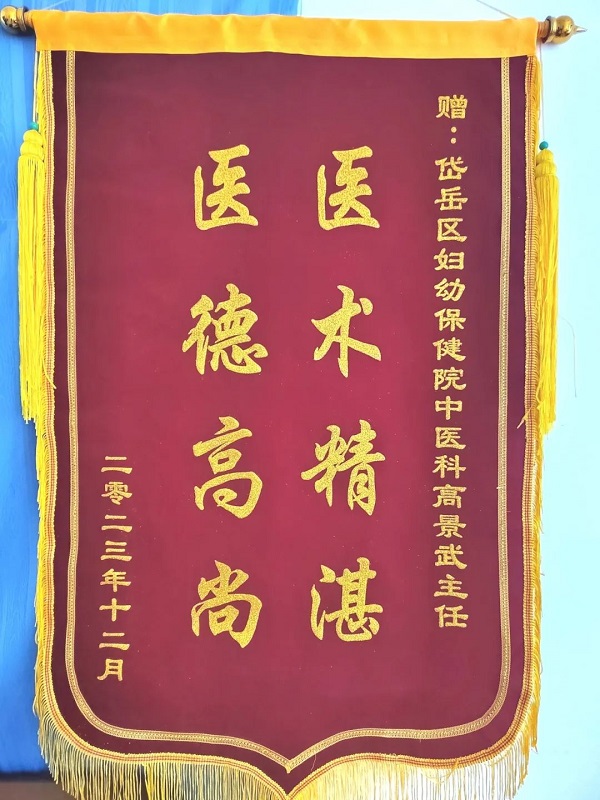 赠：岱岳区妇幼保健院中医科高景武主任
医术精湛
医德高尚
二零二三年十二月